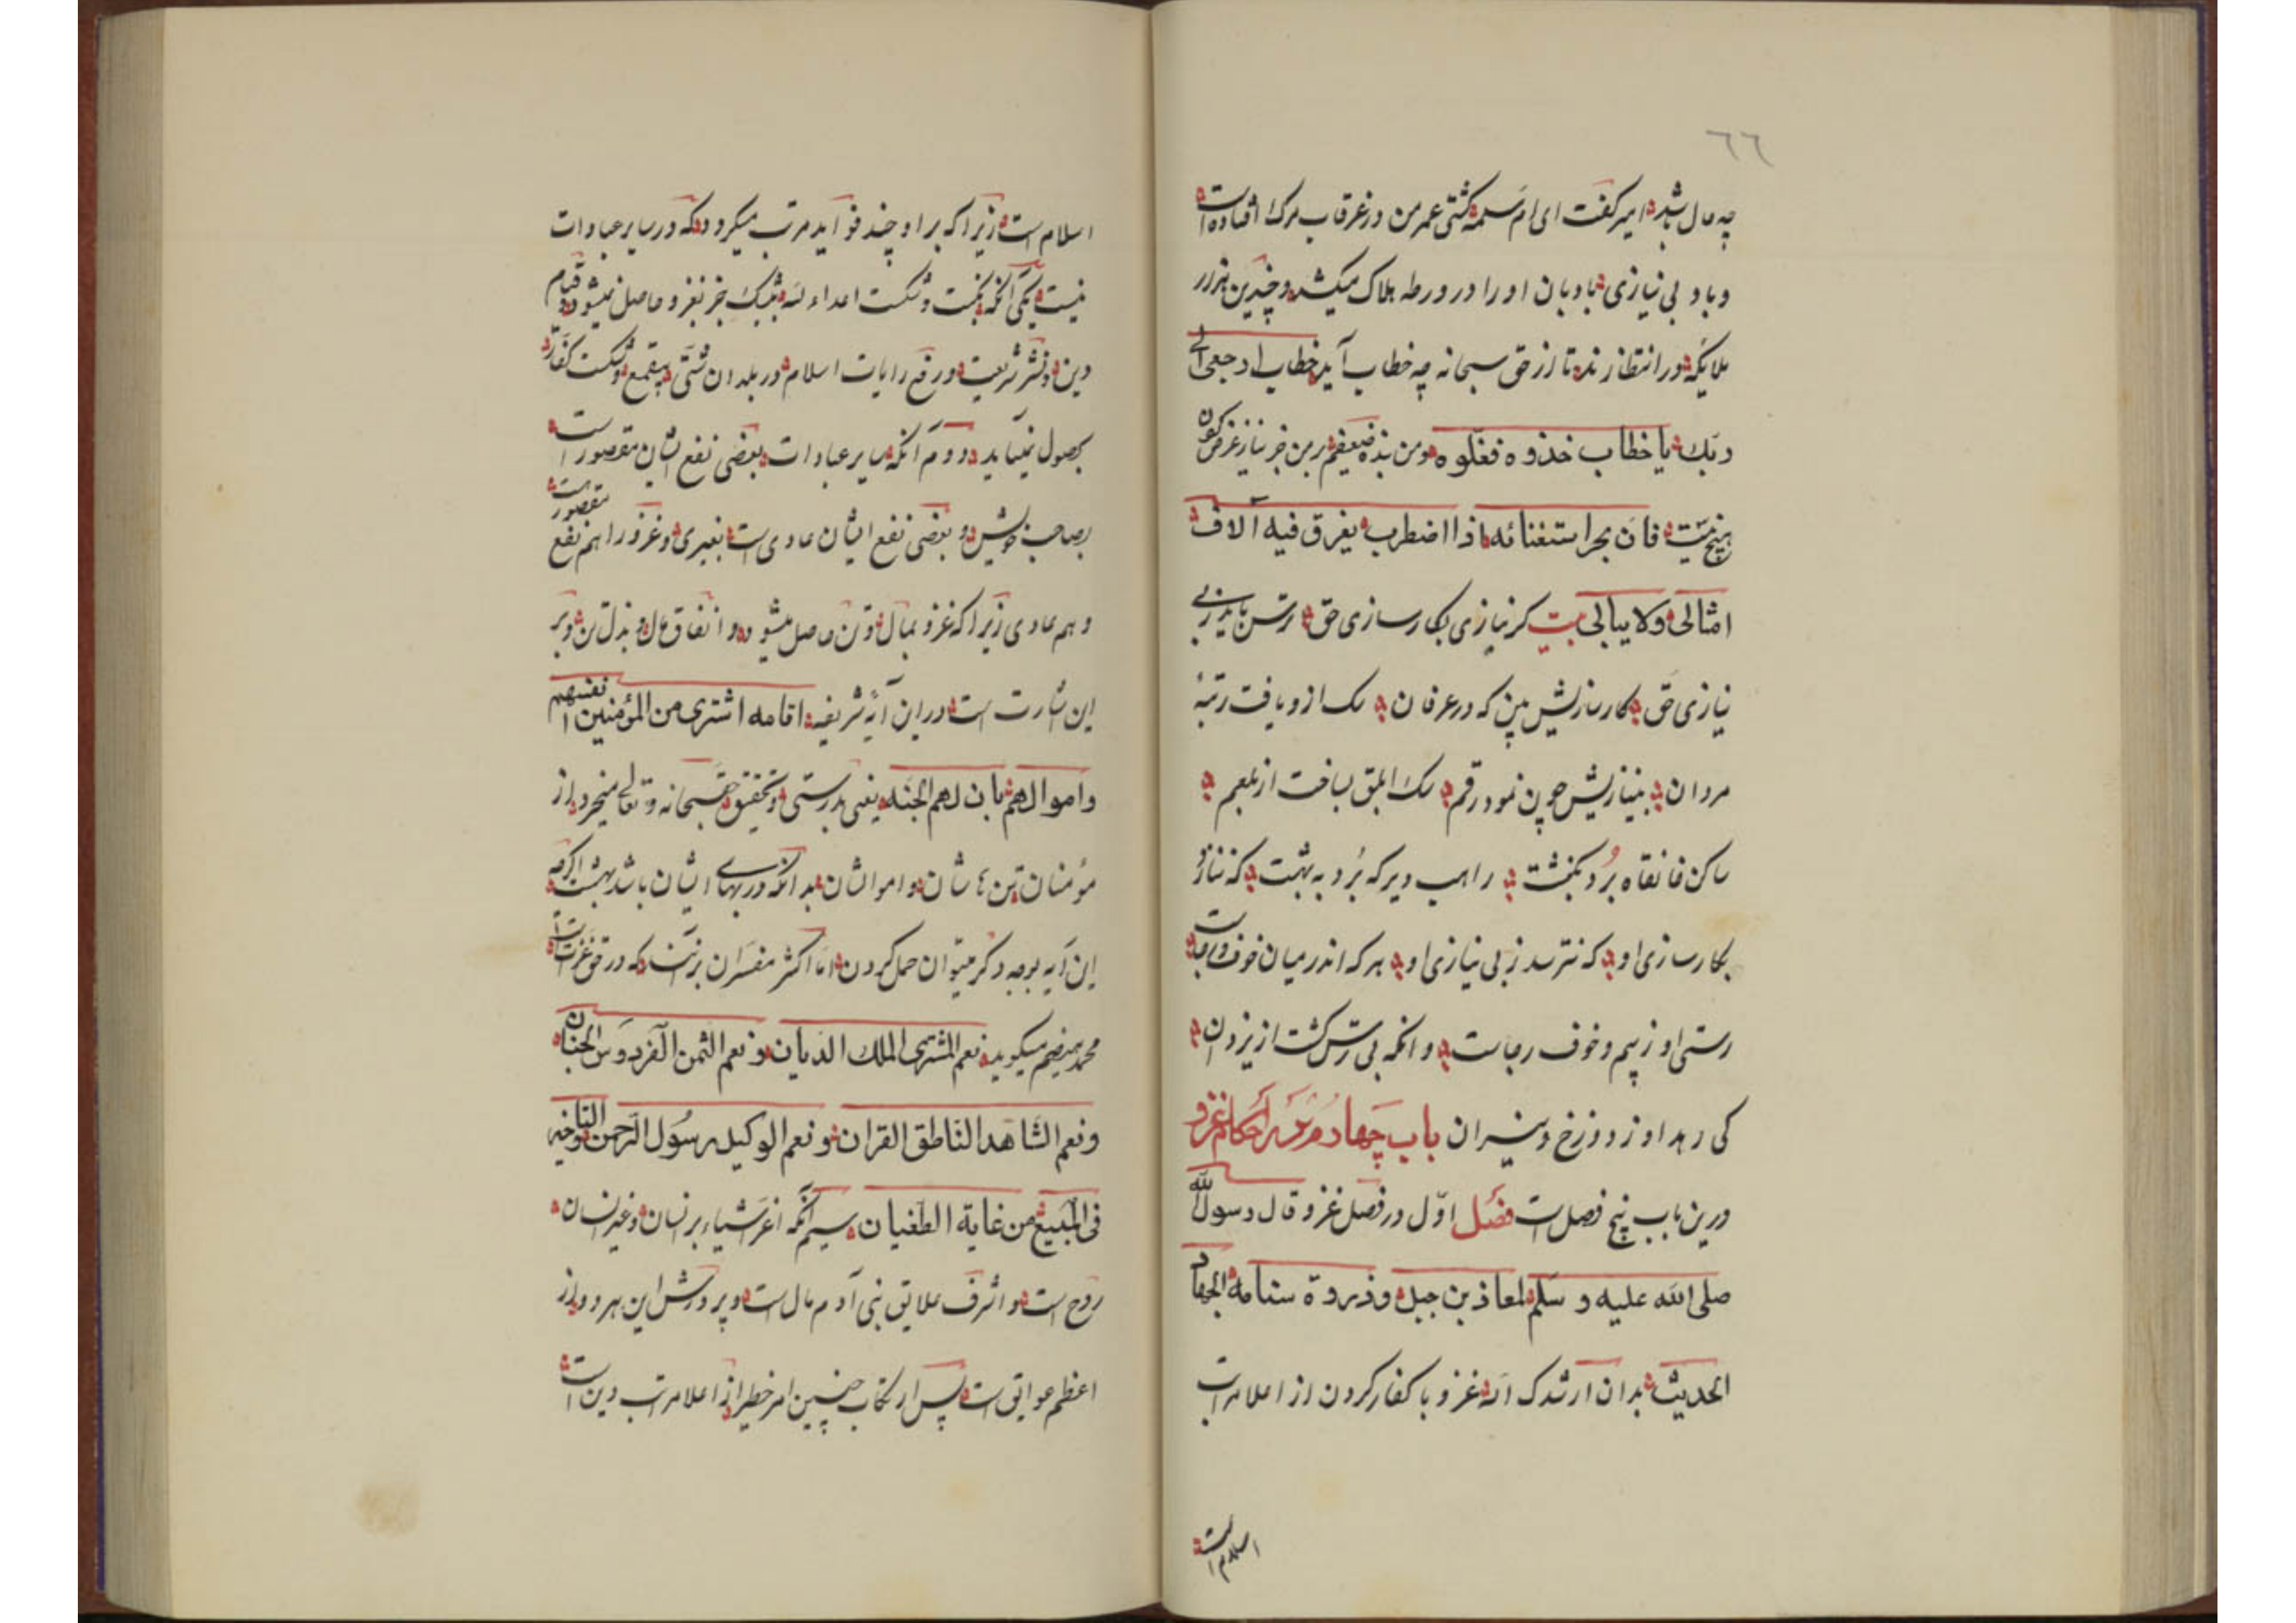 ٦٦
چه حال باشد امیر گفت ای ام سلمه کشتی عمر من در غرقاب مرک افتاده است
و باد بی نیازی بادبان او را در ورطه هلاک میکشد و چندین هزار
ملایکه در انتظارند تا از حق سبحانه چه خطاب آید خطاب ارجعی الی
ربك یا خطاب خذوه فغلوه و من بنده ضعیفم بر من جز نیاز عرض کردن
هیچ نیست فان بحر استغنائه اذا اضطرب یغرق فیه آلاف
امثالی ولا یبالی بیت کر نیازی بکارسازی حق ترس باید ز بی
نیازی حق کارسازیش بین که در عرفان سک ازو یافت رتبهٔ
مردان بینیازیش چون نمود رقم سک ابلق بساخت از بلعم
ساکن خانقاه برد بکنشت راهب دیر که برد به بهشت که ننازد
بکارسازی او که نترسد ز بی نیازی او هر که اندر میان خوف و رجاست
رستی او ز بیم و خوف رجاست وانکه بی ترس کشت از یزدان
کی رهد او ز دوزخ و نیران باب چهارم در احکام غزو
درین باب پنج فصل است فصل اول در فضل غزو قال رسول الله
صلی الله علیه و سلم لمعاذ بن جبل وذروة سنامه الجهاد
الحدیث بدان ارشدک الله غزو با کفار کردن از اعلا مراتب
اسلام است
اسلام است زیرا که بر او چند فواید مرتب میکردد که در سایر عبادات
نیست یکی آنکه نکبت و شکست اعداء الله بیشک جز بغزو حاصل نمیشود و قیام
دین و نشر شریعت و رفع رایات اسلام در بلدان شتی بیقمع و شکست کفار
بحصول نمیآید دوم آنکه سایر عبادات بعضی نفع ایشان مقصور است
بصاحب خویش و بعضی نفع ایشان عادی است بغیری و غزو را هم نفع مقصور است
و هم عادی زیرا که غزو بمال و تن حاصل میشود و انفاق مال و بذل تن و بر
این اشارت است در این آیهٔ شریفه ان الله اشتری من المؤمنین انفسهم
واموالهم بان لهم الجنه یعنی بدرستی و تحقیق حق سبحانه و تعالی میخرد از
مؤمنان تن هاشان و اموالشان بدانکه در بهای ایشان باشد بهشت اکرچه
این آیه بوجه دکر میتوان حمل کردن اما اکثر مفسران برآنند که در حق غزات است
محمد هیضم میکوید نعم المشتری الملك الدیان و نعم الثمن الفردوس الجنان
ونعم الشاهد الناطق القران ونعم الوکیل رسول الرحمن
فی المبیع من غایة الطغیان سیم آنکه اعز اشیاء بر انسان و غیر انسان
روح است و اشرف علایق بنی آدم مال است و پرورش این هر دو از
اعظم عوایق است پس ارتکاب چنین امر خطیر از اعلا مراتب دین است